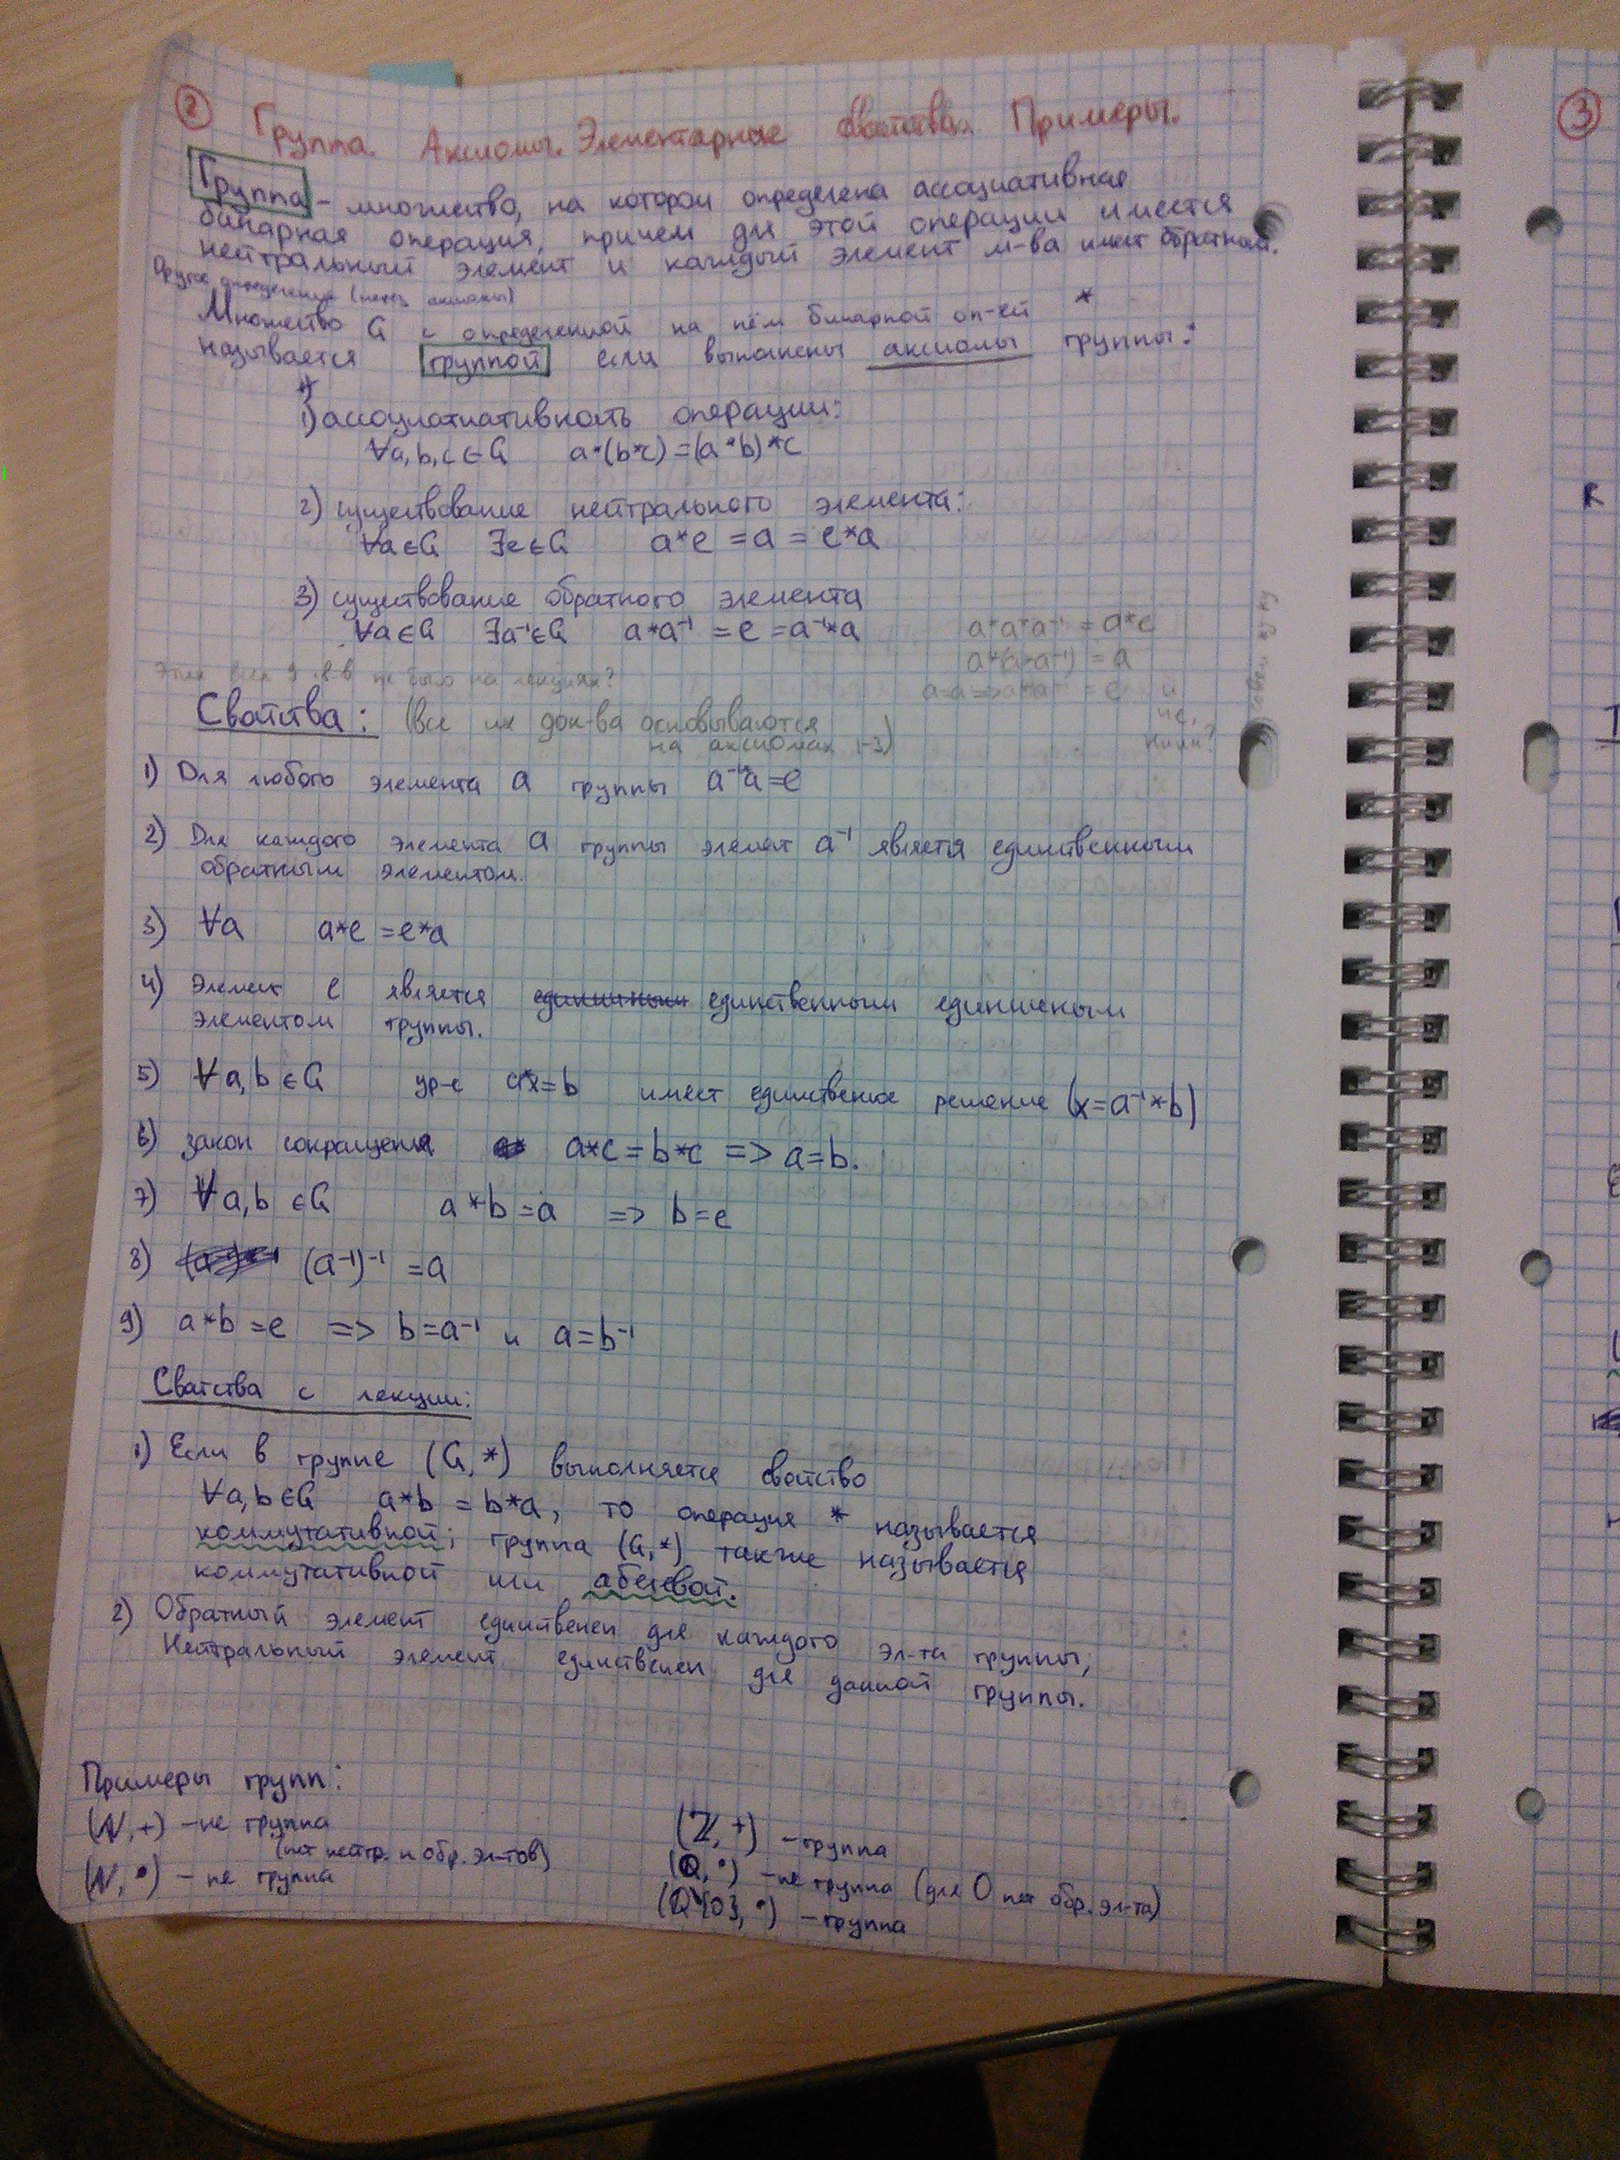 ② Группа. Аксиомы. Элементарные свойства. Примеры.
③
Группа – множество, на котором определена ассоциативная
бинарная операция, причем для этой операции имеется
нейтральный элемент и каждый элемент м-ва имеет обратный.
Другое определение (через аксиомы)
Множество G с определенной на нём бинарной оп-ей *
называется группой если выполнены аксиомы группы:
1) ассоциатиативность операции:
∀a,b,c∈G a*(b*c)=(a*b)*c
2) существование нейтрального элемента:
∀a∈G ∃e∈G a*e=a=e*a
3) существование обратного элемента
∀a∈G ∃a⁻¹∈G a*a⁻¹=e=a⁻¹*a
a*a*a⁻¹=a*e
a*(a*a⁻¹)=a
Этих всех 9 св-в не было на лекциях?
Свойства: (все их док-ва основываются
на аксиомах 1-3)
1) Для любого элемента a группы a⁻¹*a=e
2) Для каждого элемента a группы элемент a⁻¹ является единственным
обратным элементом.
3) ∀a a*e=e*a
4) Элемент e является единичным единственным единичным
элементом группы.
5) ∀a,b∈G ур-е a*x=b имеет единственное решение (x=a⁻¹*b)
6) закон сокращения a*c=b*c => a=b.
7) ∀a,b∈G a*b=a => b=e
8) (a⁻¹)⁻¹=a
9) a*b=e => b=a⁻¹ и a=b⁻¹
Свойства с лекции:
1) Если в группе (G,*) выполняется свойство
∀a,b∈G a*b=b*a, то операция * называется
коммутативной; группа (G,*) также называется
коммутативной или абелевой.
2) Обратный элемент единственен для каждого эл-та группы;
Нейтральный элемент единственен для данной группы.
Примеры групп:
(ℕ,+) – не группа
(нет нейтр. и обр. эл-тов)
(ℕ,•) – не группа
(ℤ,+) – группа
(ℚ,•) – не группа (для 0 нет обр. эл-та)
(ℚ\{0},•) – группа